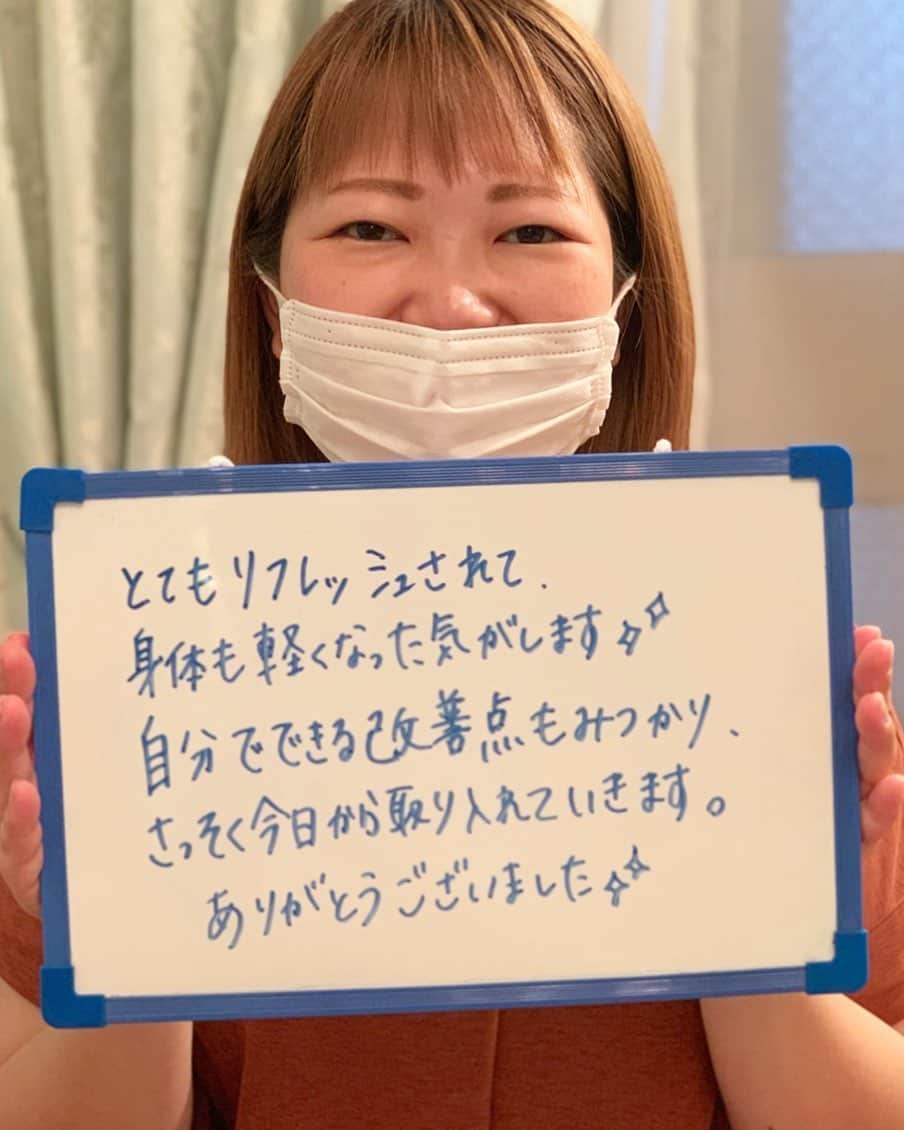 とてもリフレッシュされて、
身体も軽くなった気がします✨
自分でできる改善点もみつかり、
さっそく今日から取り入れていきます。
ありがとうございました✨